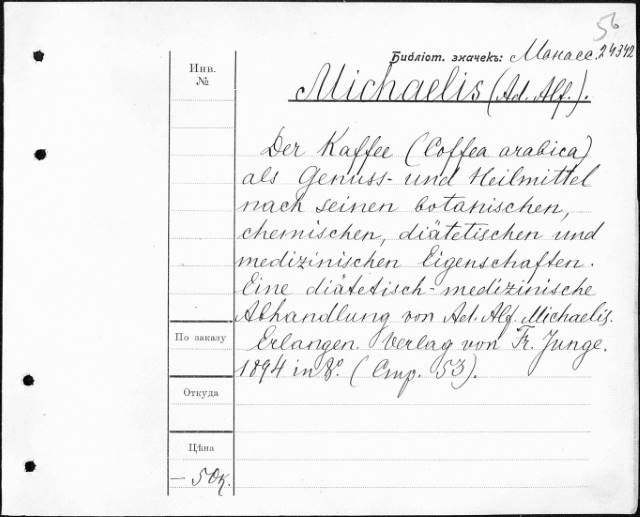 56
Библіот. значекъ: Манасс. 24342
Инв.
№
Michaelis (Ad. Alf.).
Der Kaffee (Coffea arabica)
als Genuss- und Heilmittel
nach seinen botanischen,
chemischen, diätetischen und
medizinischen Eigenschaften.
Eine diätetisch-medizinische
Abhandlung von Ad. Alf. Michaelis.
По заказу
Erlangen. Verlag von Fr. Junge.
1894 in 8°. (Стр. 53).
Откуда
Цѣна
— 50к.